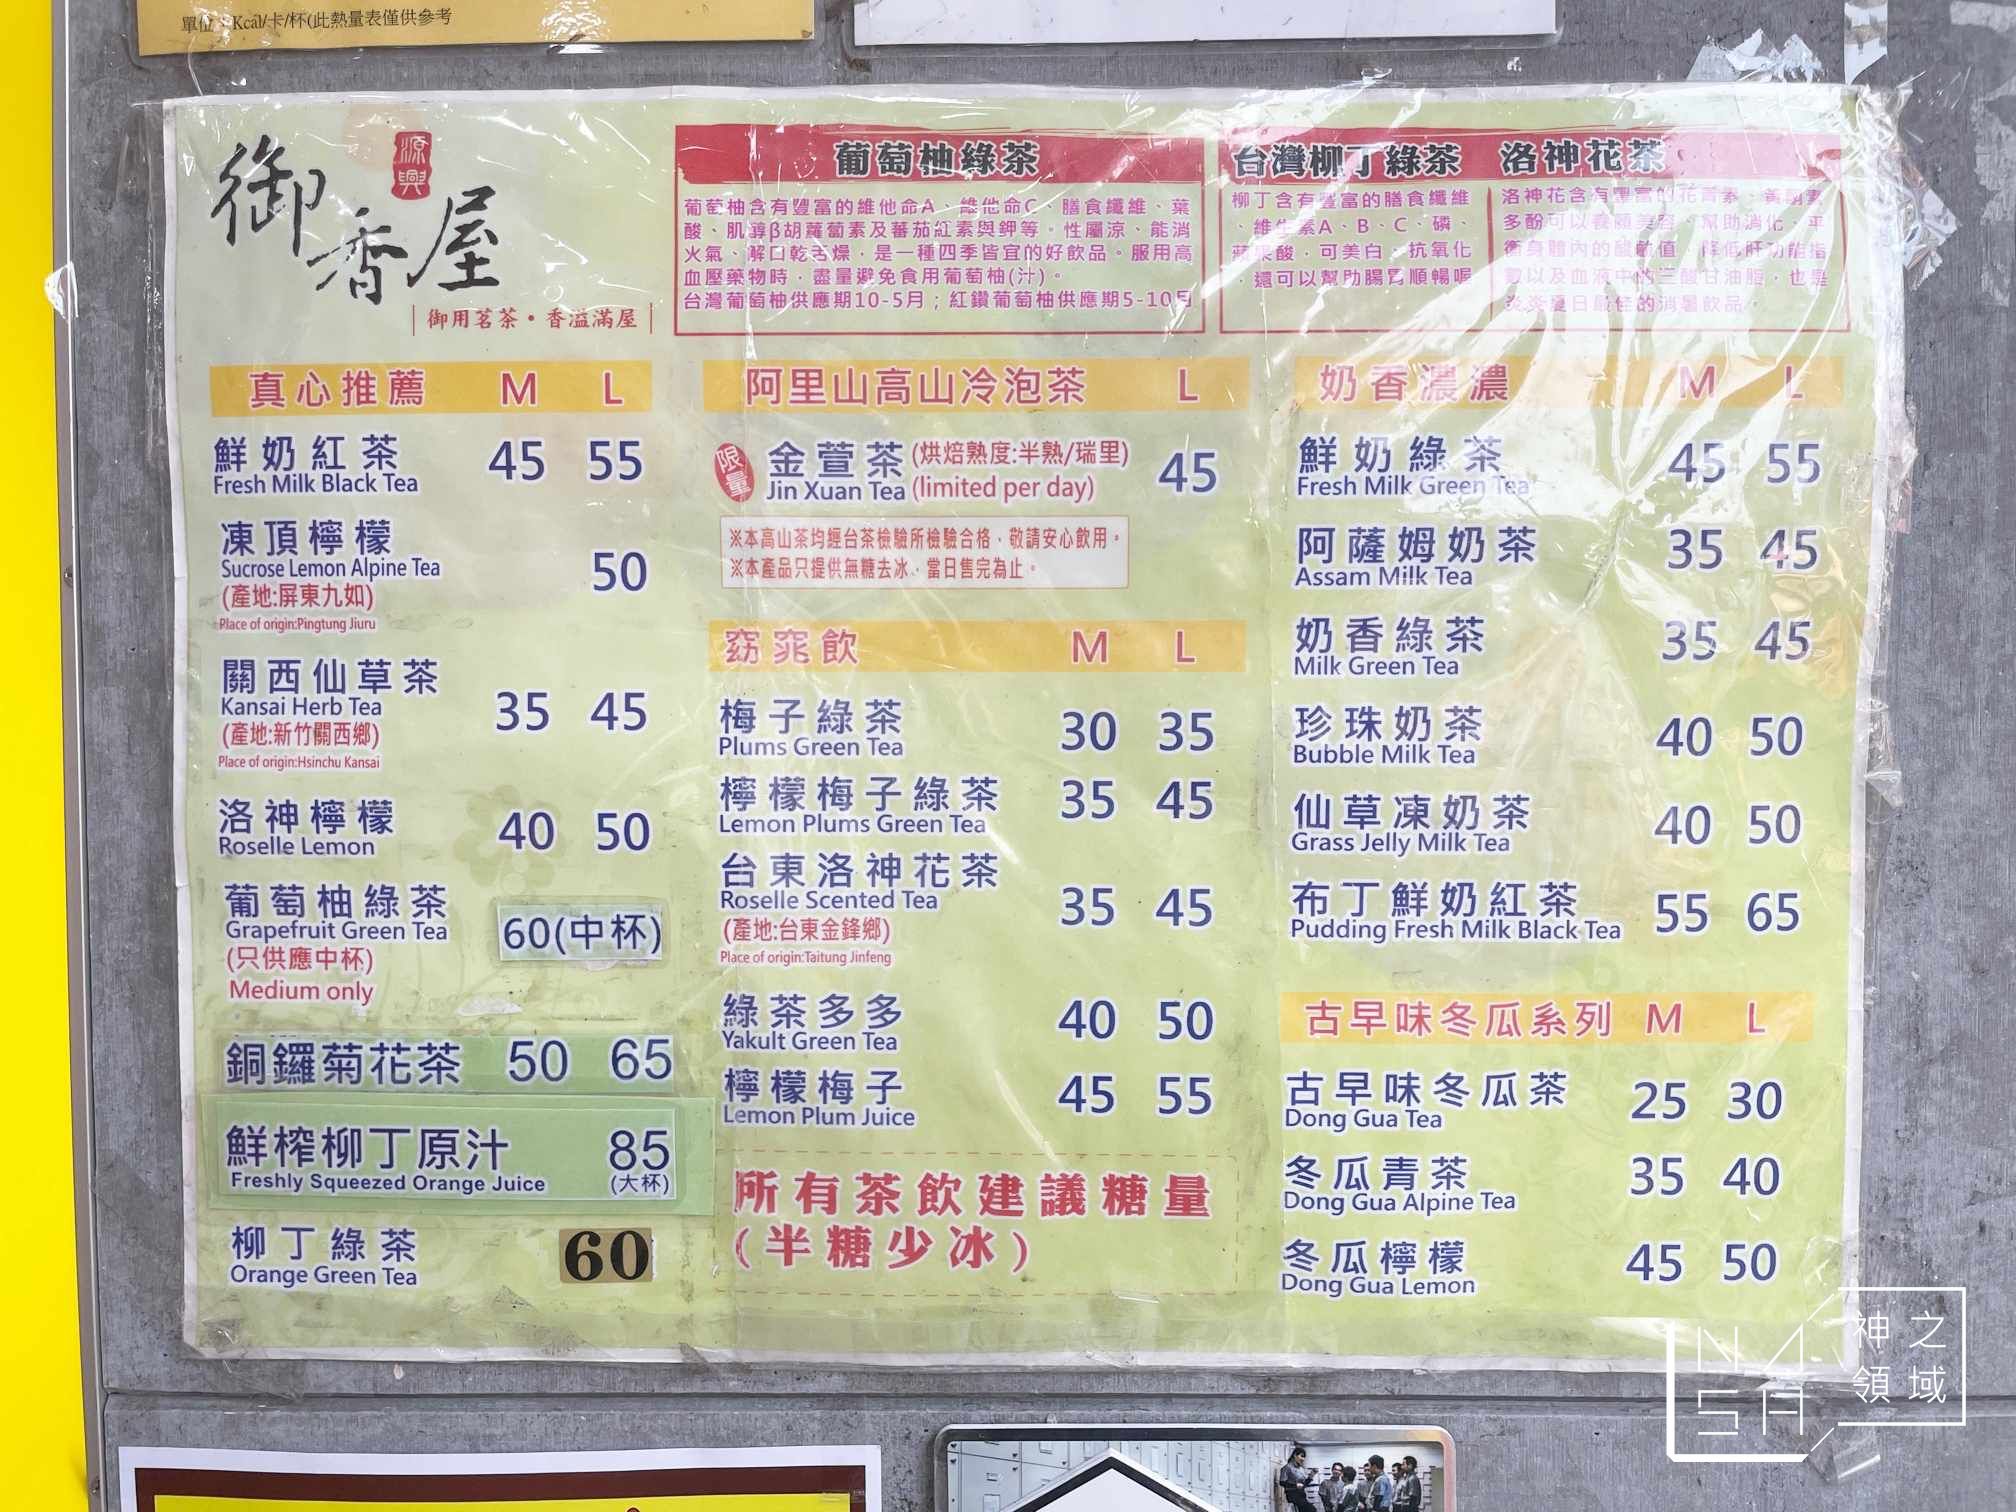 單位:Kcal/卡/杯(此熱量表僅供參考
源興
御香屋
御用茗茶・香溢滿屋
葡萄柚綠茶
葡萄柚含有豐富的維他命A、維他命C、膳食纖維、葉
酸、肌醇β胡蘿蔔素及蕃茄紅素與鉀等。性屬涼、能消
火氣、解口乾舌燥,是一種四季皆宜的好飲品。服用高
血壓藥物時,盡量避免食用葡萄柚(汁)。
台灣葡萄柚供應期10-5月;紅鑽葡萄柚供應期5-10月
台灣柳丁綠茶 洛神花茶
柳丁含有豐富的膳食纖維
、維生素A、B、C、磷、
蘋果酸,可美白、抗氧化
,還可以幫助腸胃順暢喔
洛神花含有豐富的花青素、黃酮素
多酚可以養顏美容、幫助消化、平
衡身體內的酸鹼值、降低肝功能指
數以及血液中的三酸甘油脂,也是
炎炎夏日最佳的消暑飲品。
真心推薦 M L
鮮奶紅茶 45 55
Fresh Milk Black Tea
凍頂檸檬
Sucrose Lemon Alpine Tea 50
(產地:屏東九如)
Place of origin:Pingtung Jiuru
關西仙草茶
Kansai Herb Tea 35 45
(產地:新竹關西鄉)
Place of origin:Hsinchu Kansai
洛神檸檬 40 50
Roselle Lemon
葡萄柚綠茶
Grapefruit Green Tea 60(中杯)
(只供應中杯)
Medium only
銅鑼菊花茶 50 65
鮮榨柳丁原汁 85
Freshly Squeezed Orange Juice (大杯)
柳丁綠茶 60
Orange Green Tea
阿里山高山冷泡茶 L
限量 金萱茶 (烘焙熟度:半熟/瑞里) 45
Jin Xuan Tea (limited per day)
※本高山茶均經台茶檢驗所檢驗合格、敬請安心飲用。
※本產品只提供無糖去冰、當日售完為止。
窈窕飲 M L
梅子綠茶 30 35
Plums Green Tea
檸檬梅子綠茶 35 45
Lemon Plums Green Tea
台東洛神花茶
Roselle Scented Tea 35 45
(產地:台東金鋒鄉)
Place of origin:Taitung Jinfeng
綠茶多多 40 50
Yakult Green Tea
檸檬梅子 45 55
Lemon Plum Juice
所有茶飲建議糖量
(半糖少冰)
奶香濃濃 M L
鮮奶綠茶 45 55
Fresh Milk Green Tea
阿薩姆奶茶 35 45
Assam Milk Tea
奶香綠茶 35 45
Milk Green Tea
珍珠奶茶 40 50
Bubble Milk Tea
仙草凍奶茶 40 50
Grass Jelly Milk Tea
布丁鮮奶紅茶 55 65
Pudding Fresh Milk Black Tea
古早味冬瓜系列 M L
古早味冬瓜茶 25 30
Dong Gua Tea
冬瓜青茶 35 40
Dong Gua Alpine Tea
冬瓜檸檬 45 50
Dong Gua Lemon
神之
領域